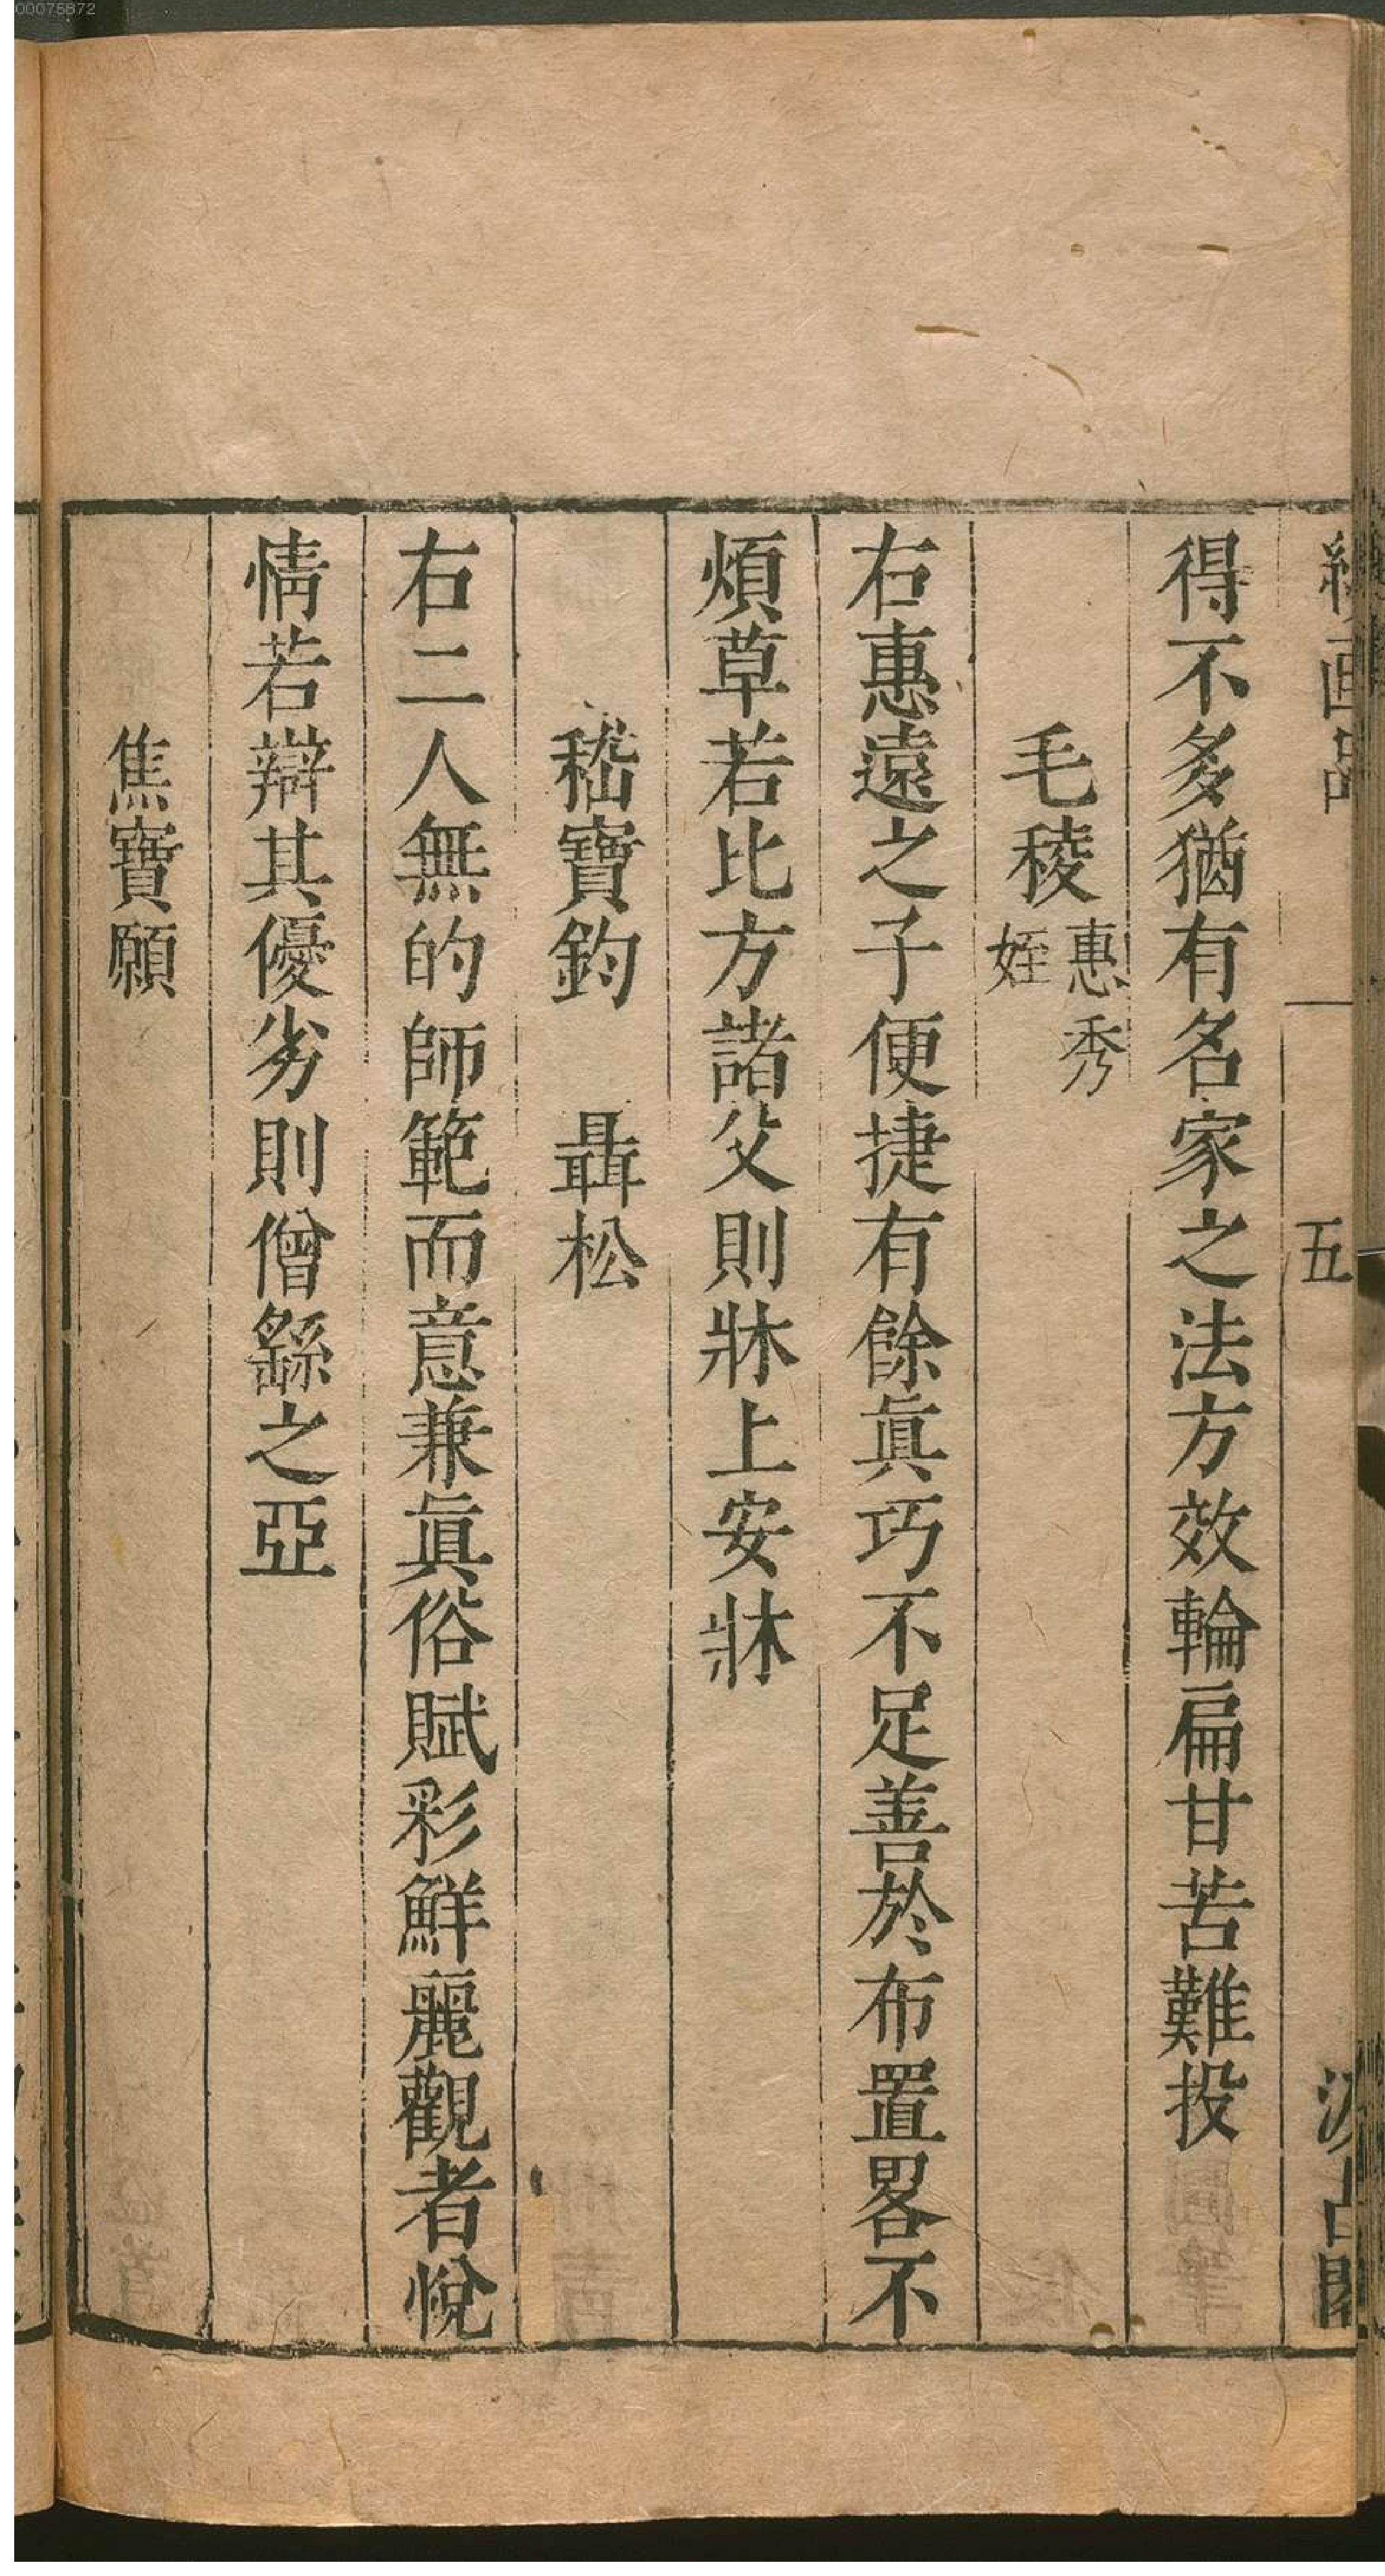 00075872
五
得不多猶有名家之法方效輪扁甘苦難投
毛稜惠秀姪
右惠遠之子便捷有餘眞巧不足善於布置畧不
煩草若比方諸父則牀上安牀
嵇寶鈞　聶松
右二人無的師範而意兼眞俗賦彩鮮麗觀者悅
情若辯其優劣則僧繇之亞
焦寶願